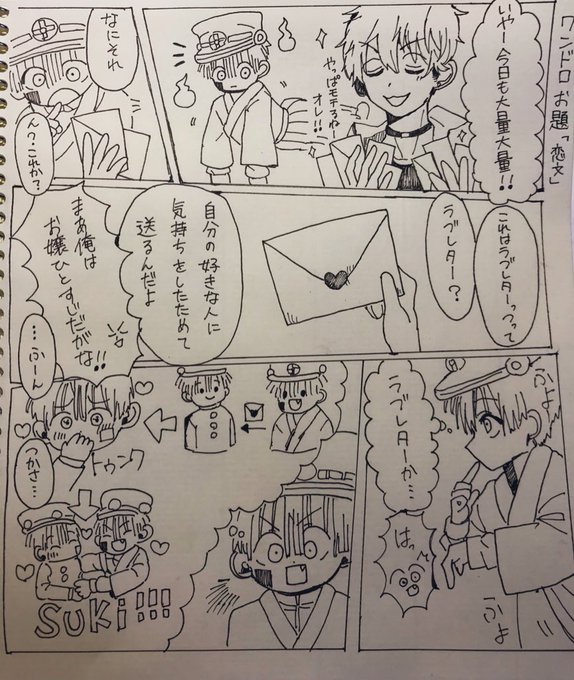 ワンドロ お題「恋文」
いやー今日も大量大量!!
やっぱモテるねー
オレ!!
なにそれ
ん?これか?
これはラブレターっつって
ラブレター?
自分の好きな人に
気持ちをしたためて
送るんだよ
まあ俺は
お嬢ひとすじだがな!!
…ふーん
ふよ
ラブレターか…
はっ
ふよ
トゥンク
つかさ…
SUKi!!!